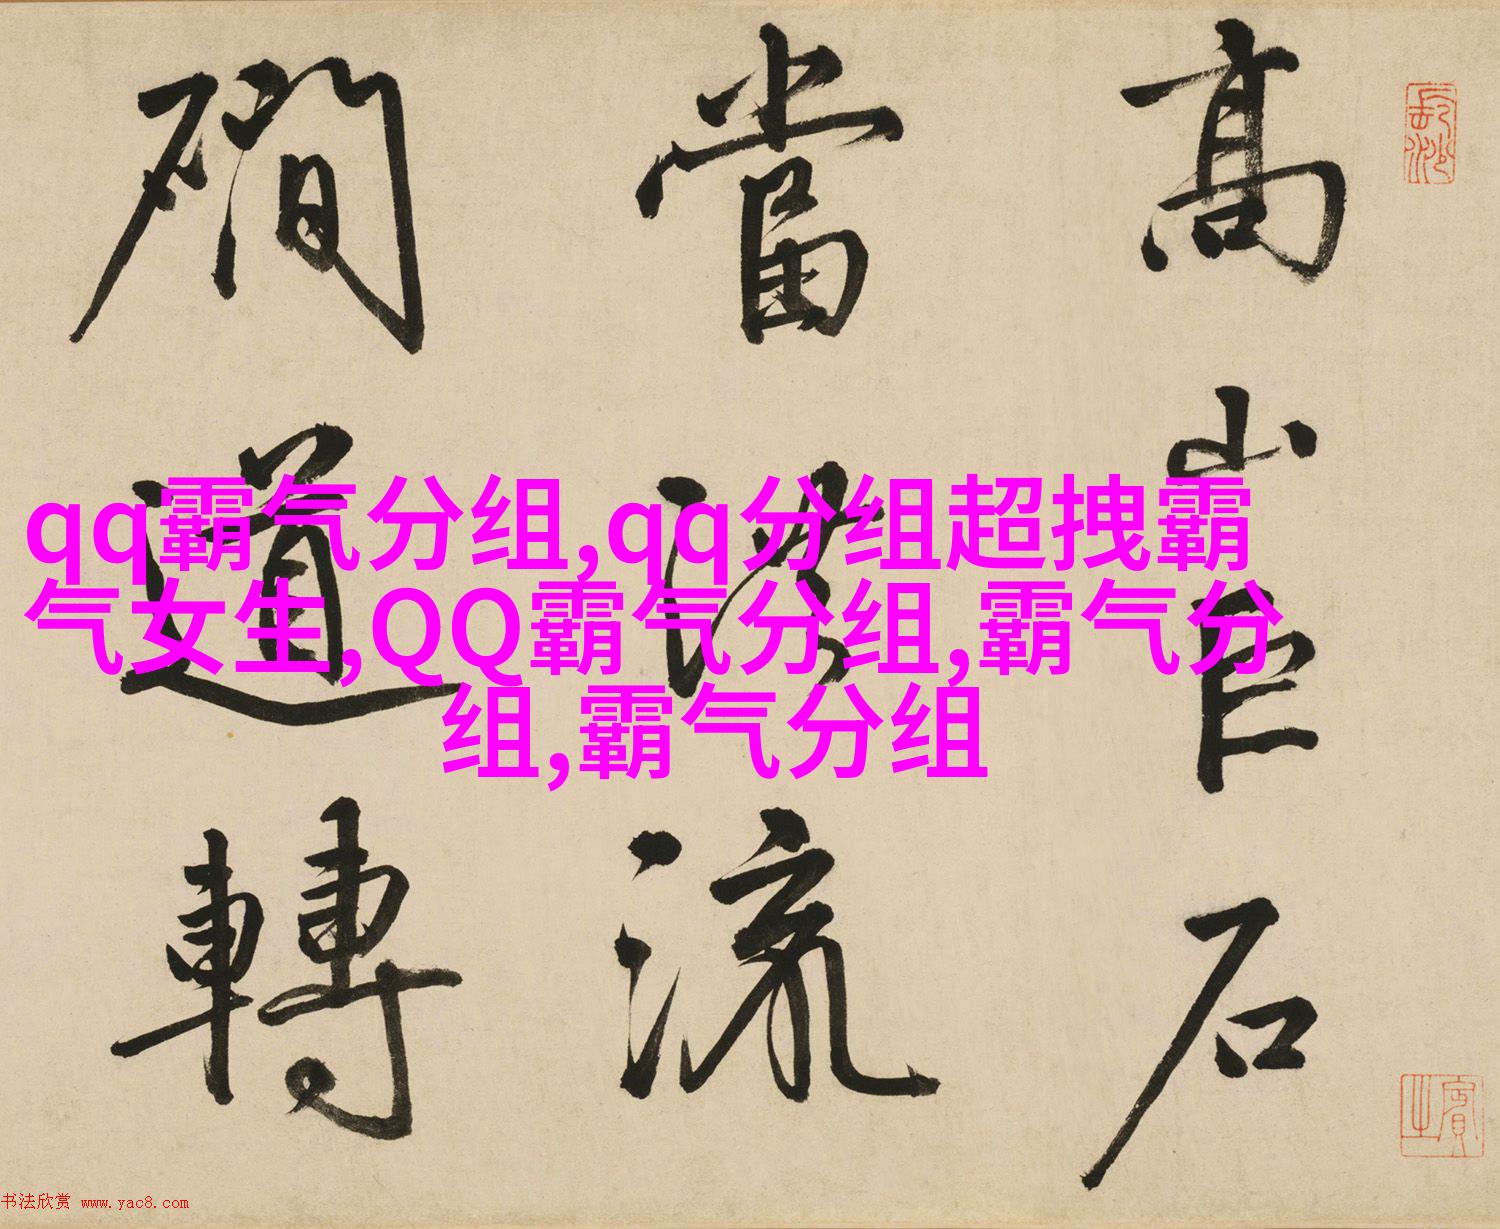 qq霸气分组,qq分组超拽霸
气女生,QQ霸气分组,霸气分
组,霸气分组
長沙
高山巨石
賓之
當流
磵道轉
书法欣赏 www.yac8.com